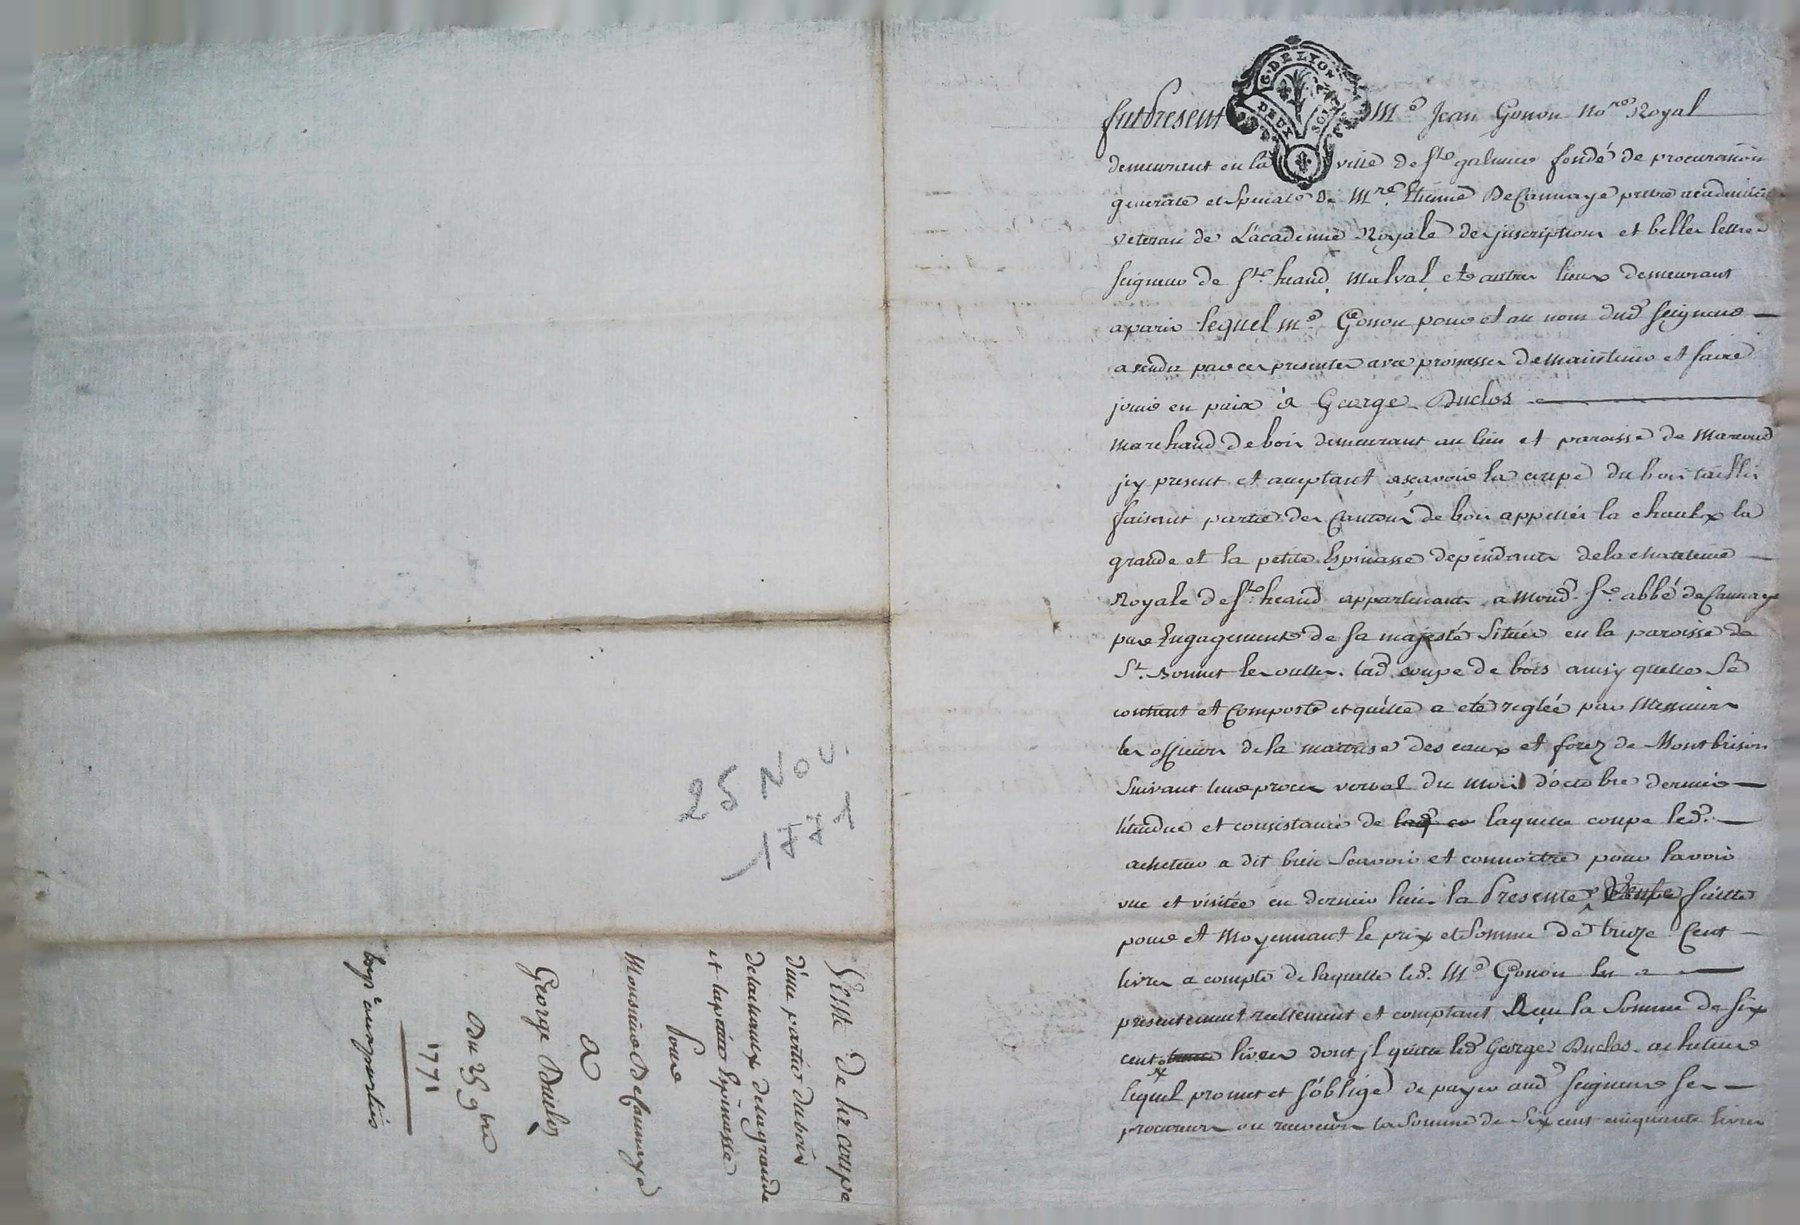 G. DE LYON
DEUX SOLS
fut Present Me Jean Gonon Nore Royal
demeurant en la ville de St galmier fondé de procuration
generalle et speciale de Mre Etienne DeCannaye pretre academicien
veteran de L'academie Royale des jnscriptions et belles lettres
seigneur de St heand, Malval, et autres lieux demeurant
a paris lequel Me Gonon pour et au nom dud seigneur
a vendu par ces presentes avec promesse de maintenir et faire
jouir en paix à George Duclos
marchand de bois demeurant au lieu et paroisse de Marcoud
jcy present et acceptant ascavoir la coupe du bois taillis
faisant partie des Cantons de bois appellés la chaulx la
grande et la petite Espinasse dependants de la chatelenie
Royale de St heand appartenants a mond. Sr abbé de Cannaye
par Engagement de sa majesté située en la paroisse de
St. Bonnet les oulles. lad. coupe de bois ainsy quelle se
contient et Comporte et quelle a eté reglée par Messieurs
les officiers de la maitrise des eaux et forez de Montbrison
suivant leur procès verbal du mois d'octobre dernier
l'étendue et consistance de laquelle coupe led.
acheteur a dit bien scavoir et connoitre pour lavoir
vue et visitée en dernier lieu. la Presente vente faitte
pour et Moyennant le prix et somme de treize Cent
livres a compte de laquelle led. Me Gonon en a
presentement reellement et comptant Reçu la somme de six
cent livres dont jl quitte led. George Duclos acheteur
lequel promet et s'oblige de payer aud seigneur ses
procureurs ou receveurs la somme de six cent cinquante livres
25 NOV.
1771
Vente de la coupe
d'une partie du bois
de la chaux de la grande
et la petite Espinasse
Pour
Monsieur De Cannaye
a
George Duclos
Du 25 9bre
1771